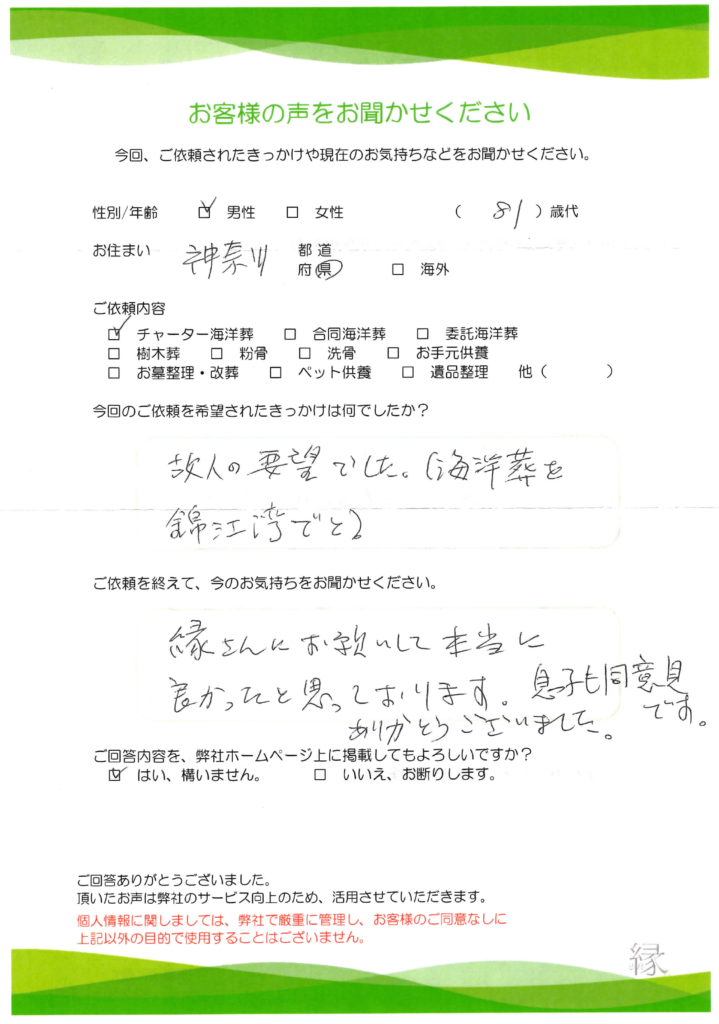 お客様の声をお聞かせください
今回、ご依頼されたきっかけや現在のお気持ちなどをお聞かせください。
性別/年齢 ☑ 男性 □ 女性 ( 81 ) 歳代
お住まい 神奈川 都 道
府 県 □ 海外
ご依頼内容
☑ チャーター海洋葬 □ 合同海洋葬 □ 委託海洋葬
□ 樹木葬 □ 粉骨 □ 洗骨 □ お手元供養
□ お墓整理・改葬 □ ペット供養 □ 遺品整理 他 ( )
今回のご依頼を希望されたきっかけは何でしたか？
故人の要望でした。(海洋葬を
錦江湾でと)
ご依頼を終えて、今のお気持ちをお聞かせください。
縁さんにお願いして本当に
良かったと思っております。息子も同意見
です。
ありがとうございました。
ご回答内容を、弊社ホームページ上に掲載してもよろしいですか？
☑ はい、構いません。 □ いいえ、お断りします。
ご回答ありがとうございました。
頂いたお声は弊社のサービス向上のため、活用させていただきます。
個人情報に関しましては、弊社で厳重に管理し、お客様のご同意なしに
上記以外の目的で使用することはございません。
縁